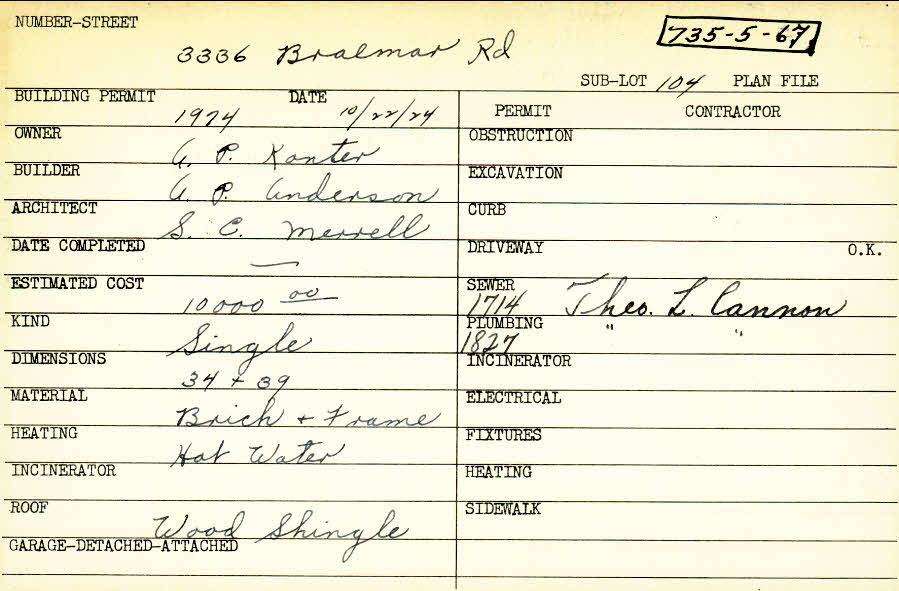 NUMBER-STREET
3336 Braemar Rd
735-5-67
SUB-LOT 104 PLAN FILE
BUILDING PERMIT DATE
1974 10/22/24
OWNER
A. P. Kanter
BUILDER
A. P. Anderson
ARCHITECT
S. C. Merrell
DATE COMPLETED
—
ESTIMATED COST
10000 00
KIND
Single
DIMENSIONS
34 + 39
MATERIAL
Brick + Frame
HEATING
Hot Water
INCINERATOR
ROOF
Wood Shingle
GARAGE-DETACHED-ATTACHED
PERMIT CONTRACTOR
OBSTRUCTION
EXCAVATION
CURB
DRIVEWAY O.K.
SEWER
1714 Theo. L. Cannon
PLUMBING " "
1827
INCINERATOR
ELECTRICAL
FIXTURES
HEATING
SIDEWALK